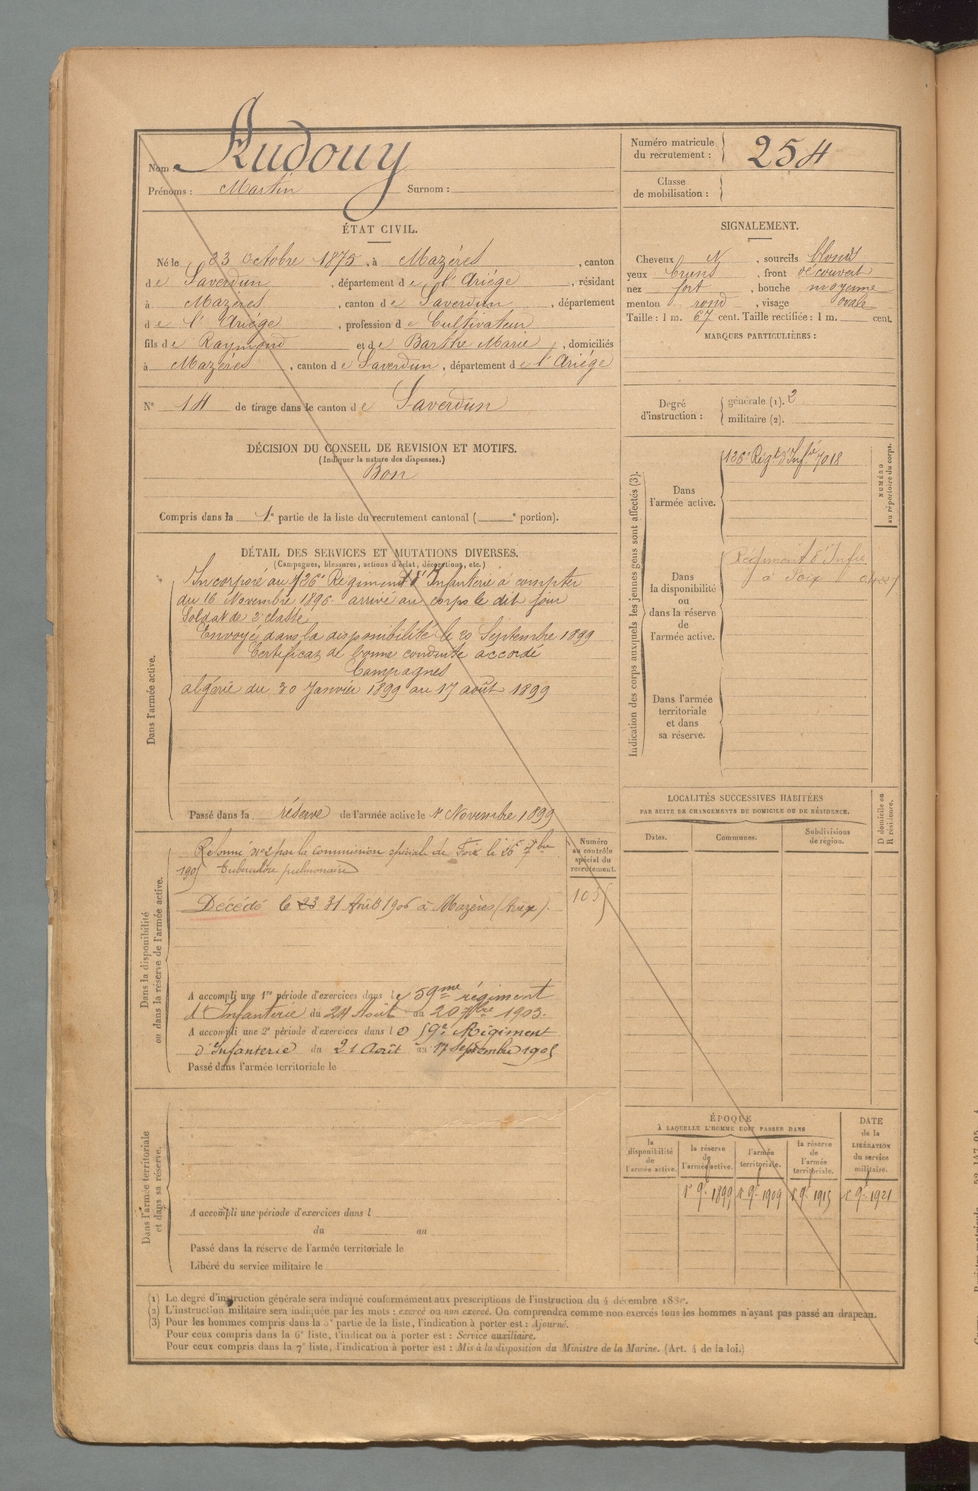 Nom Audouy
Prénoms : Martin Surnom :
Numéro matricule du recrutement : 254
Classe de mobilisation :
ÉTAT CIVIL.
Né le 23 Octobre 1875, à Mazères, canton
de Saverdun, département de l'Ariége, résidant
à Mazères, canton de Saverdun, département
de l'Ariége, profession de Cultivateur
fils de Raymond et de Barthe Marie, domiciliés
à Mazères, canton de Saverdun, département de l'Ariége
N° 14 de tirage dans le canton de Saverdun
SIGNALEMENT.
Cheveux N, sourcils blonds
yeux bruns, front découvert
nez fort, bouche moyenne
menton rond, visage ovale
Taille : 1 m. 67 cent. Taille rectifiée : 1 m. cent.
MARQUES PARTICULIÈRES :
Degré d'instruction : générale (1). 2
militaire (2).
DÉCISION DU CONSEIL DE REVISION ET MOTIFS.
(Indiquer la nature des dispenses.)
Bon
Compris dans la 1e partie de la liste du recrutement cantonal ( e portion).
DÉTAIL DES SERVICES ET MUTATIONS DIVERSES.
(Campagnes, blessures, actions d'éclat, décorations, etc.)
Dans l'armée active.
Incorporé au 126e Régiment d'Infanterie à compter
du 16 Novembre 1896 arrivé au corps le dit jour
Soldat de 2e classe.
Envoyé dans la disponibilité le 20 Septembre 1899
Certificat de bonne conduite accordé
Campagnes
algérie du 30 Janvier 1899 au 17 août 1899
Passé dans la réserve de l'armée active le 1 Novembre 1899
Indication des corps auxquels les jeunes gens sont affectés (3).
NUMÉRO au répertoire du corps.
Dans l'armée active.
126e Régt d'Infie 7018
Dans la disponibilité ou dans la réserve de l'armée active.
Régiment d'Infie
à Foix
Dans l'armée territoriale et dans sa réserve.
Dans la disponibilité ou dans la réserve de l'armée active.
Réformé n° 2 par la Commission spéciale de Foix le 26 7bre
1905 Tuberculose pulmonaire
Décédé le 23 31 Août 1906 à Mazères (Ariège).
Numéro au contrôle spécial du recrutement.
1035
A accompli une 1re période d'exercices dans le 59me régiment
d'Infanterie du 24 Août au 20 7bre 1903.
A accompli une 2e période d'exercices dans le 59e Régiment
d'Infanterie du 21 Août au 17 Septembre 1905
Passé dans l'armée territoriale le
LOCALITÉS SUCCESSIVES HABITÉES
PAR SUITE DE CHANGEMENTS DE DOMICILE OU DE RÉSIDENCE.
Dates. Communes. Subdivisions de région. D domicile ou R résidence.
Dans l'armée territoriale et dans sa réserve.
A accompli une période d'exercices dans l
du au
Passé dans la réserve de l'armée territoriale le
Libéré du service militaire le
ÉPOQUE
À LAQUELLE L'HOMME DOIT PASSER DANS
la disponibilité de l'armée active. la réserve de l'armée active. l'armée territoriale. la réserve de l'armée territoriale. DATE de la LIBÉRATION du service militaire.
1er 9e 1899 1er 9e 1909 1er 9e 1915 1er 9e 1921
(1) Le degré d'instruction générale sera indiqué conformément aux prescriptions de l'instruction du 4 décembre
(2) L'instruction militaire sera indiquée par les mots : exercé ou non exercé. On comprendra comme non exercés tous les hommes n'ayant pas passé au drapeau.
(3) Pour les hommes compris dans la 5e partie de la liste, l'indication à porter est : Ajourné.
Pour ceux compris dans la 6e liste, l'indication à porter est : Service auxiliaire.
Pour ceux compris dans la 7e liste, l'indication à porter est : Mis à la disposition du Ministre de la Marine. (Art. 4 de la loi.)